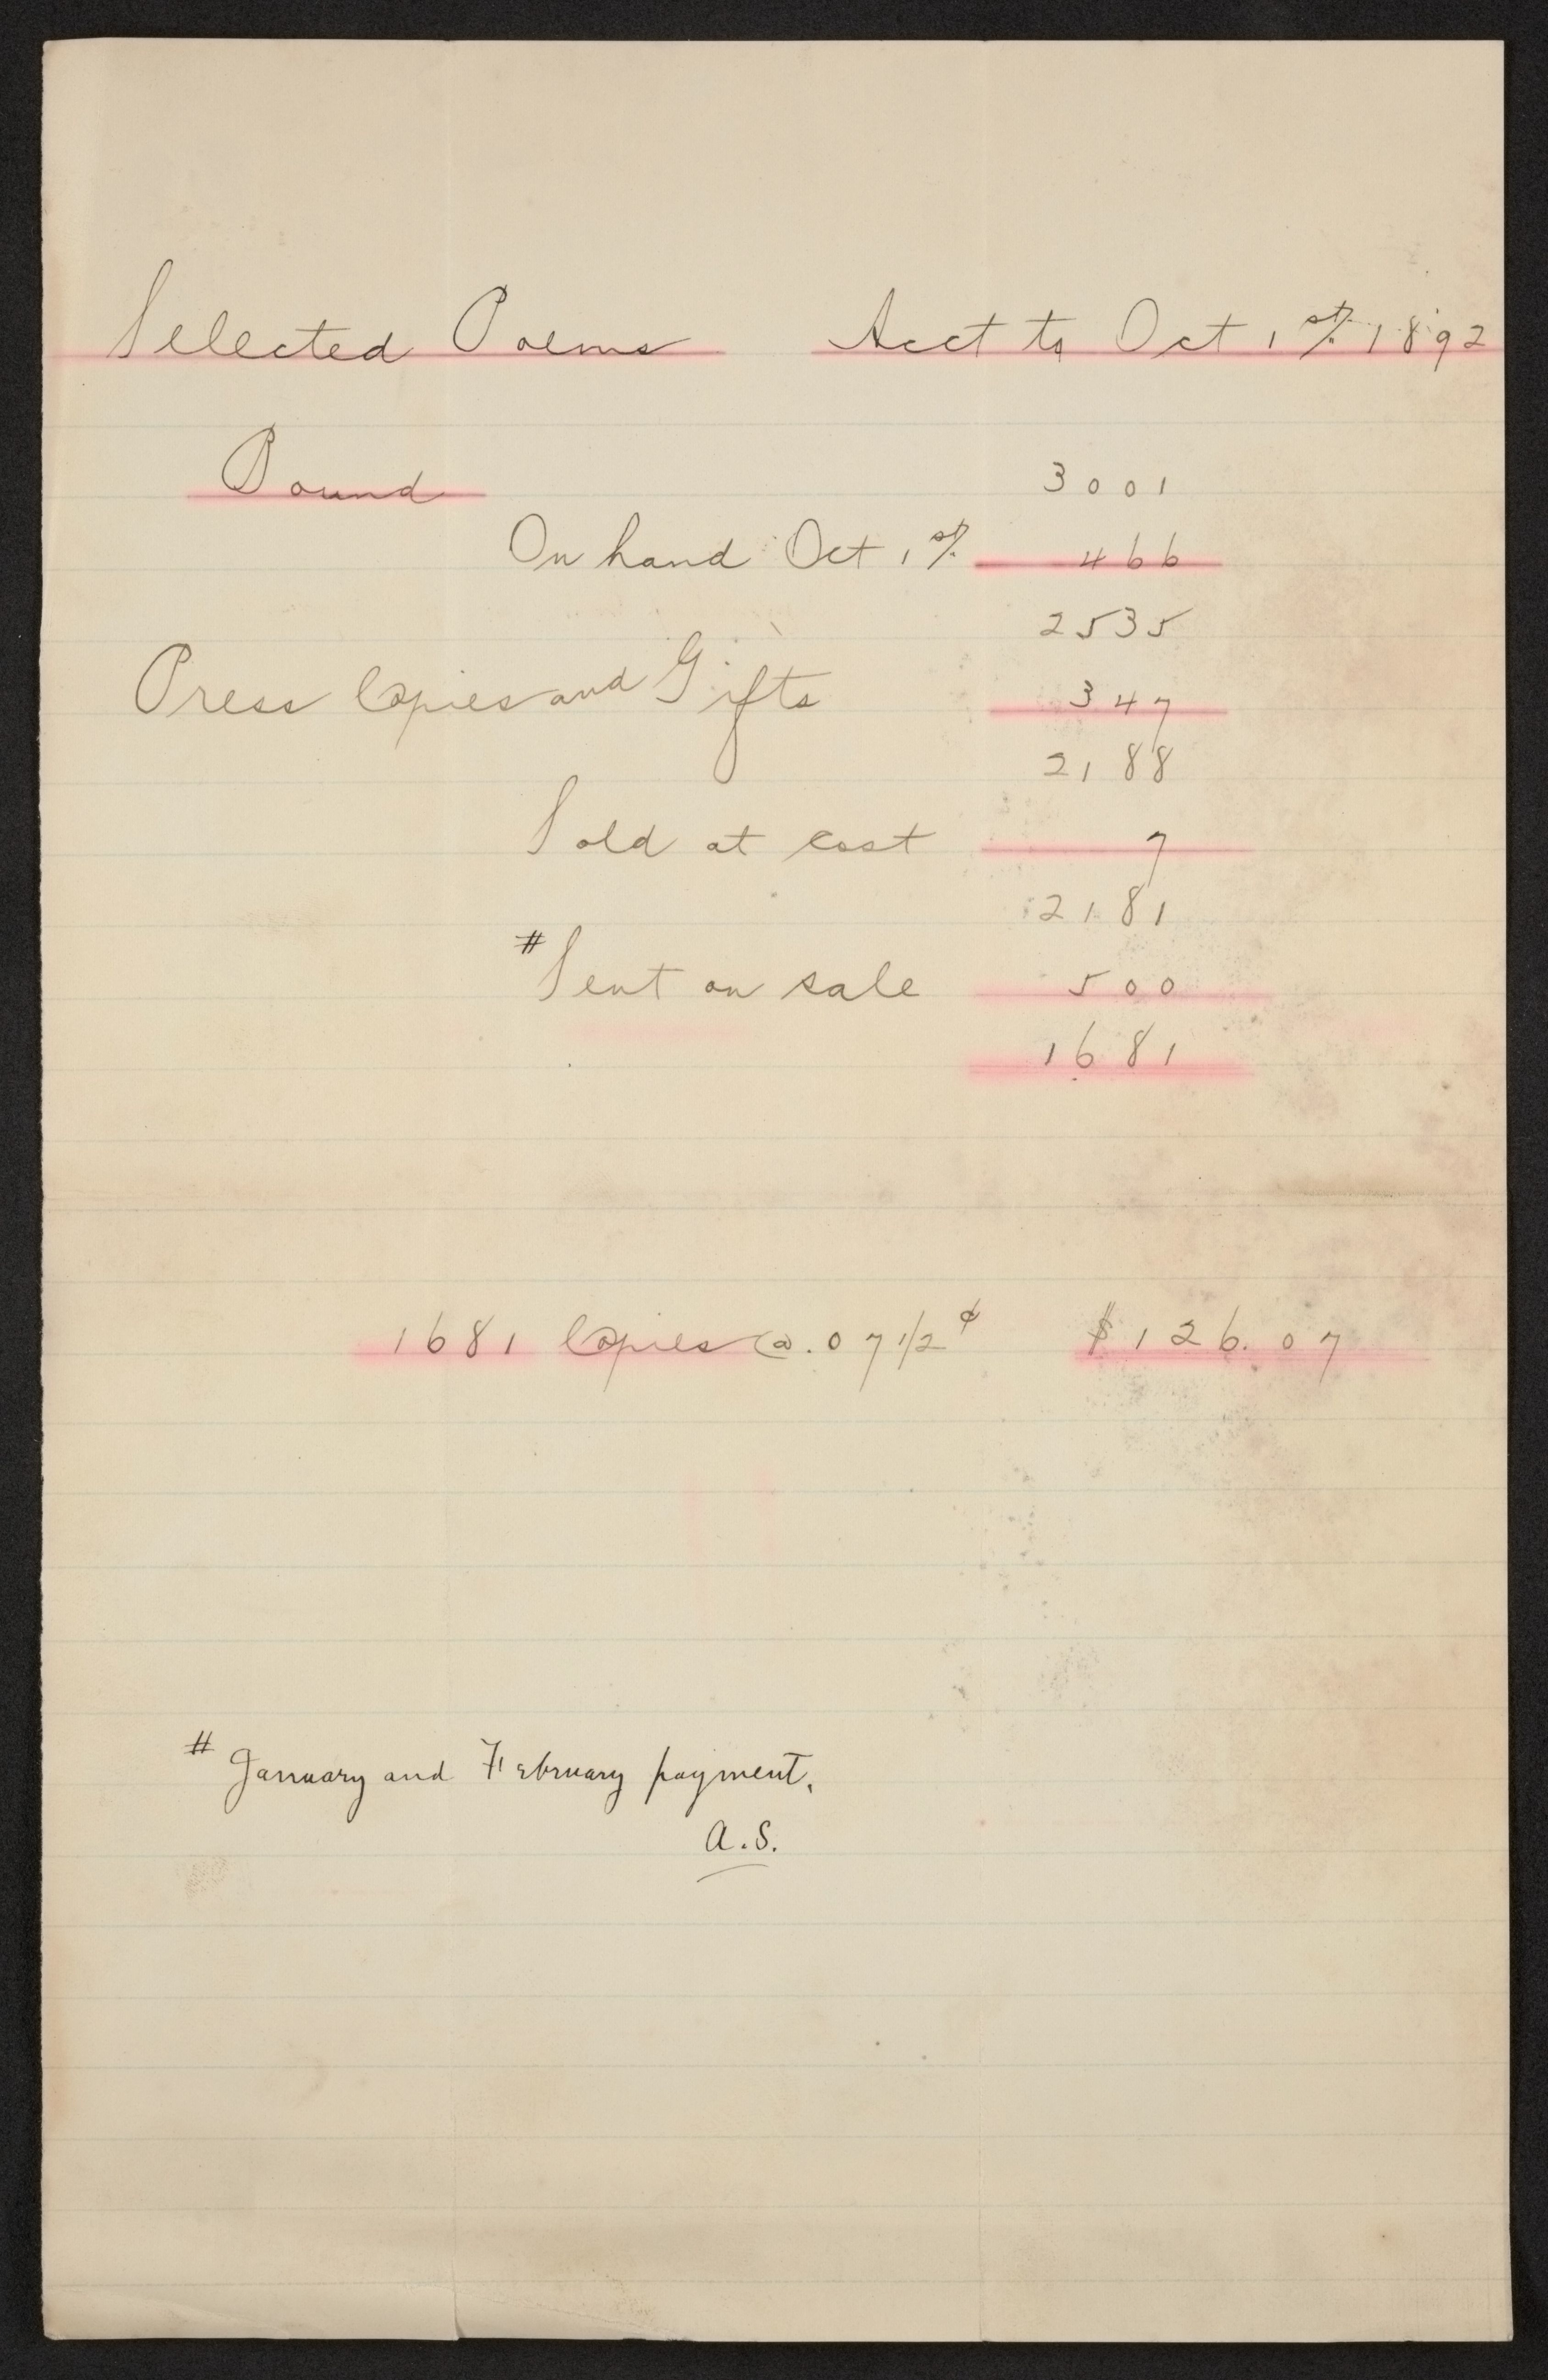 Selected Poems Acct to Oct 1st. 1892
Bound 3001
On hand Oct 1st. 466
2535
Press Copies and Gifts 347
2188
Sold at cost 7
2181
# Sent on sale 500
1681
1681 Copies @ .07 1/2 ¢ $126.07
# January and February payment.
A.S.